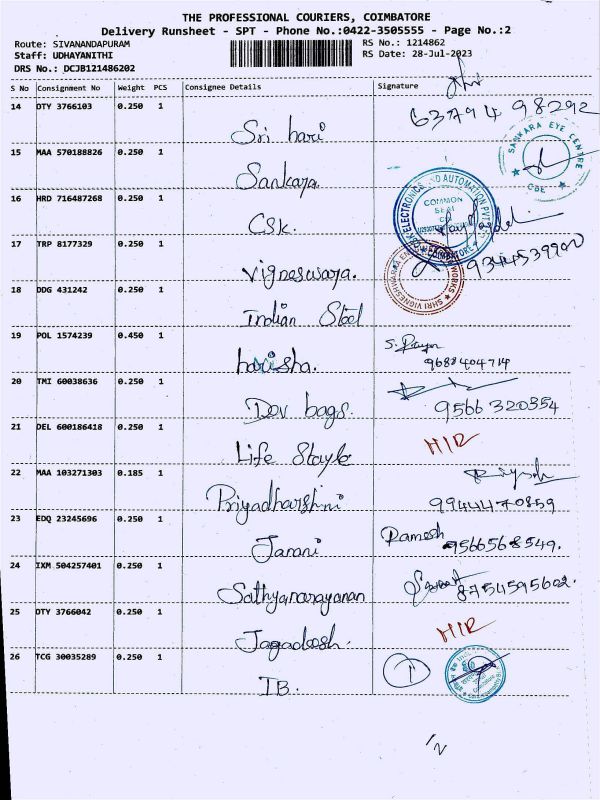 THE PROFESSIONAL COURIERS, COIMBATORE
Delivery Runsheet - SPT - Phone No.:0422-3505555 - Page No.:2
Route: SIVANANDAPURAM
RS No.: 1214862
Staff: UDHAYANITHI
RS Date: 28-Jul-2023
DRS No.: DCJB121486202
S No Consignment No Weight PCS Consignee Details Signature
14 OTY 3766103 0.250 1
Sri hari
63794 98292
15 MAA 570188826 0.250 1
Sankara.
SANKARA EYE CENTRE
CBE
16 HRD 716487268 0.250 1
CSK.
ELECTRONICS AND AUTOMATION PVT
COMMON
SEAL
COIMBATORE
17 TRP 8177329 0.250 1
Vigneswara.
9344539900
SHRI VIGNESHWARA
WORKS
18 DDG 431242 0.250 1
Indian Steel
19 POL 1574239 0.450 1
harisha.
9688404714
20 TMI 60038636 0.250 1
Dev bags.
9566 320354
21 DEL 600186418 0.250 1
Life Stayle
HIR
22 MAA 103271303 0.185 1
Priyadharshini
9944470859
23 EDQ 23245696 0.250 1
Janani
Ramesh
9566568549.
24 IXM 504257401 0.250 1
Sathyanarayanan
8754595602.
25 OTY 3766042 0.250 1
Jagadeesh.
HIR
26 TCG 30035289 0.250 1
IB.
1
1/2